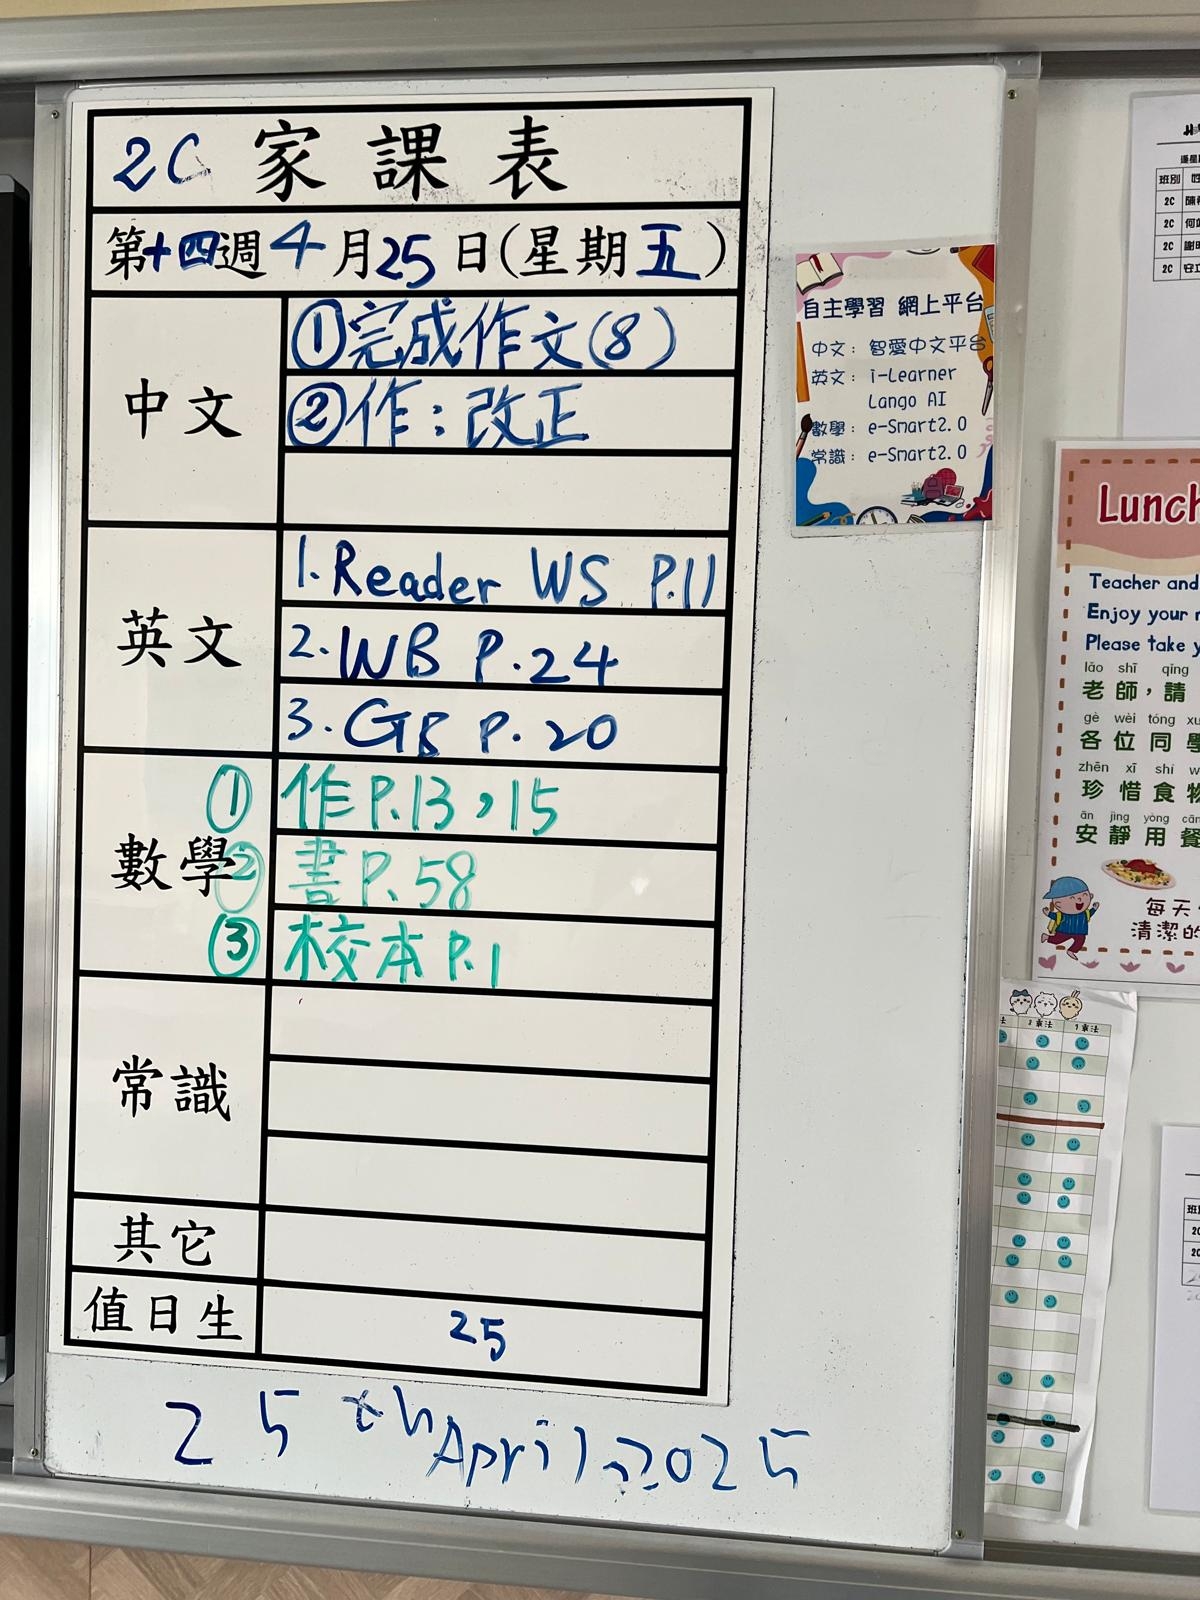 2C 家課表
第十四週 4月25日(星期五)
中文
①完成作文(8)
②作:改正
英文
1. Reader WS P.11
2. WB P.24
3. GB P.20
數學
① 作P.13,15
② 書P.58
③ 校本P.1
常識
其它
值日生
25
25th April 2025
自主學習 網上平台
中文: 智愛中文平台
英文: i-Learner
Lango AI
數學: e-Smart2.0
常識: e-Smart2.0
班別
2C 陳
2C 何
2C 謝
2C
Lunch
Teacher and
Enjoy your
Please take
lǎo shī qǐng
老師,請
gè wèi tóng
各位同學
zhēn xī shí
珍惜食物
ān jìng yòng cān
安靜用餐
每天
清潔的
2乘法
1乘法